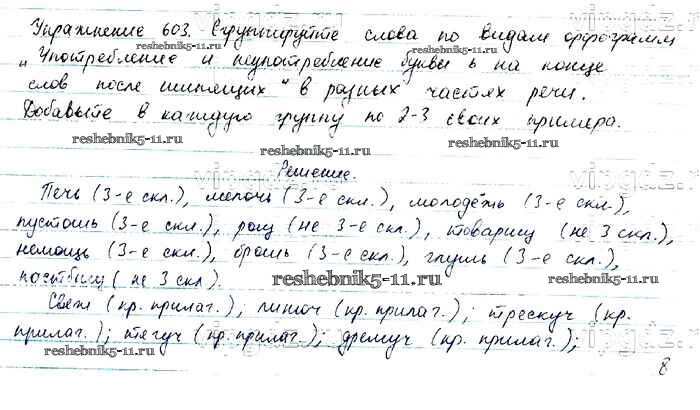 Упражнение 603. Сгруппируйте слова по видам орфограмм
„Употребление и неупотребление буквы ь на конце
reshebnik5-11.ru
reshebnik5-11.ru
слов после шипящих" в разных частях речи.
Добавьте в каждую группу по 2-3 своих примера.
reshebnik5-11.ru
reshebnik5-11.ru
Решение.
vipgdz.ru
Печь (3-е скл.), мелочь (3-е скл.), молодёжь (3-е скл.),
пустошь (3-е скл.), рощ (не 3-е скл.), товарищ (не 3 скл.),
немощь (3-е скл.), брошь (3-е скл.), глушь (3-е скл.),
пастбищ (не 3 скл.).
reshebnik5-11.ru
Свеж (кр. прилаг.); пигоч (кр. прилаг.); трескуч (кр.
reshebnik5-11.ru
прилаг.); тягуч (кр. прилаг.); дремуч (кр. прилаг.);
reshebnik5-11.ru
8